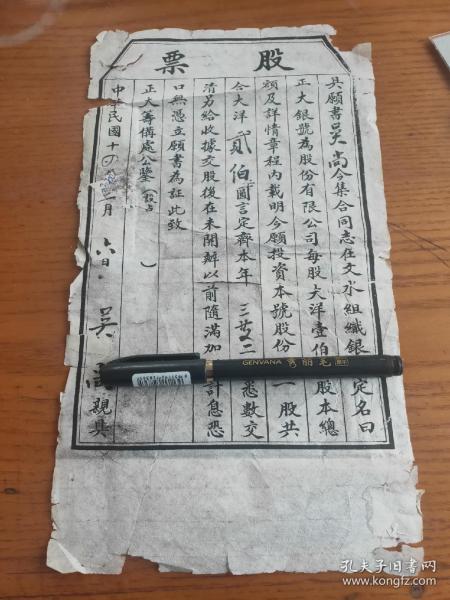 股票
具願書吳尚今集合同志在文水組織銀 定名曰
正大銀號為股份有限公司每股大洋壹伯 股本總
額及詳情章程內載明今願投資本號股份 一股共
合大洋貳伯圓言定齊本年三 二 悉數交
清另給收據交股後在未開辦以前隨滿加 計息恐
口無憑立願書為証此致
正大籌備處公鑒(投占 )
中華民國十四 月 吳 親具
GENVANA 秀丽笔
孔夫子旧书网
www.kongfz.com